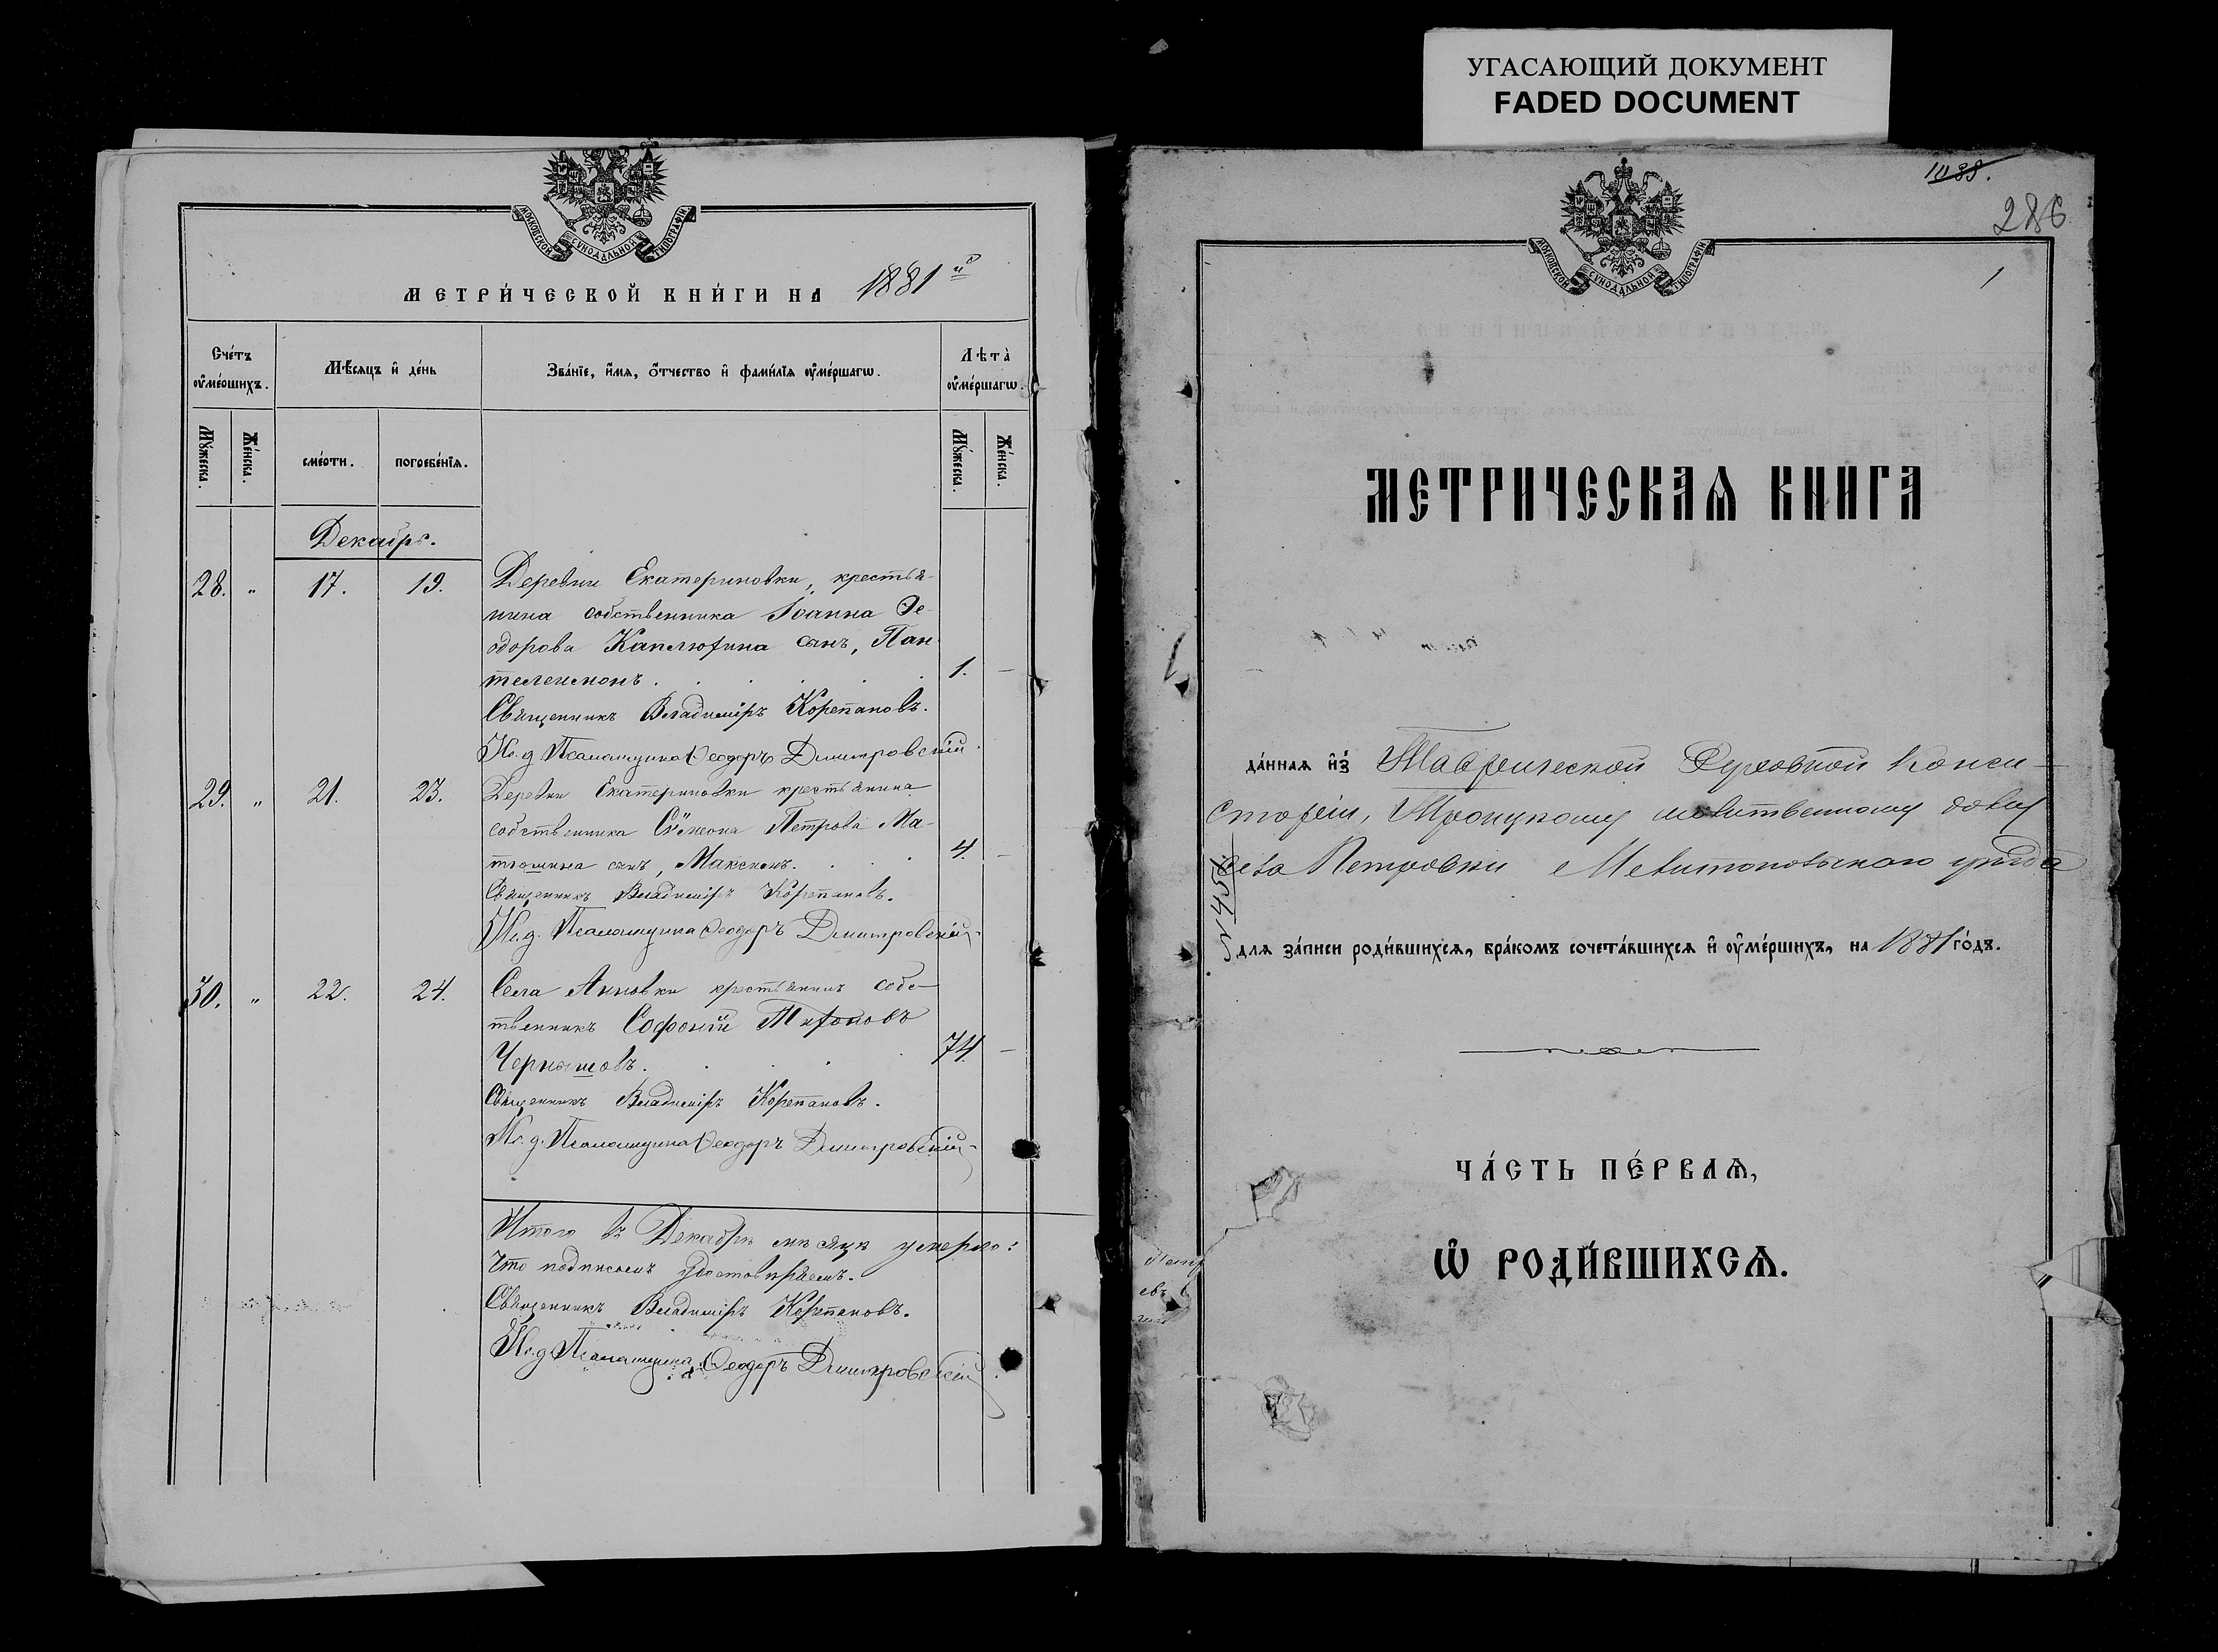 УГАСАЮЩИЙ ДОКУМЕНТ
FADED DOCUMENT
МОСКОВСКОЙ СѴНОДАЛЬНОЙ ТИПОГРАФІИ
МЕТРИ́ЧЕСКОЙ КНИ́ГИ НА 1881й
Сче́тъ ᲂу҆ме́ршихъ.
Мѣ́сяцъ и҆ де́нь
Зва́нїе, и҆́мѧ, ѻ҆́тчество и҆ фами́лїѧ ᲂу҆ме́ршагѡ.
Лѣта̀ ᲂу҆ме́ршагѡ.
Мꙋ́жеска.
Же́нска.
сме́рти.
погребе́нїѧ.
Мꙋ́жеска.
Же́нска.
Декабрь.
28. " 17. 19. Деревни Екатериновки, крестья-
нина собственника Іоанна Ѳе-
одорова Каплютина сынъ, Пан-
телеимонъ. 1. —
Священникъ Владиміръ Корепановъ.
Ис. д. Псаломщика Ѳеодоръ Димитровскій.
29. " 21. 23. Деревни Екатериновки крестьянина
собственника Сѷмеона Петрова Ма-
тюшина сынъ, Максимъ. 4. —
Священникъ Владиміръ Корепановъ.
Ис. д. Псаломщика Ѳеодоръ Димитровскій.
30. " 22. 24. Села Анновки крестьянинъ соб-
ственникъ Софоній
Чернышовъ. 74. —
Священникъ Владиміръ Корепановъ.
Ис. д. Псаломщика Ѳеодоръ Димитровскій.
Итого въ Декабрѣ мѣсяцѣ умерло:
Что подписомъ удостовѣряемъ.
Священникъ Владиміръ Корепановъ.
Ис. д. Псаломщика Ѳеодоръ Димитровскій.
1038.
286
1
МОСКОВСКОЙ СѴНОДАЛЬНОЙ ТИПОГРАФІИ
МЕТРИЧЕСКАѦ КНИГА
да́ннаѧ и҆з̾ Таврической Духовной Конси-
сторіи, Троицкому молитвенному дому
села Петровки Мелитопольскаго уѣзда
для за́писи роди́вшихсѧ, бра́комъ сочета́вшихсѧ и҆ ᲂу҆ме́ршихъ, на 1881 го́дъ.
ЧА́СТЬ ПЕ́РВАѦ,
Ѽ РОДИ́ВШИХСѦ.